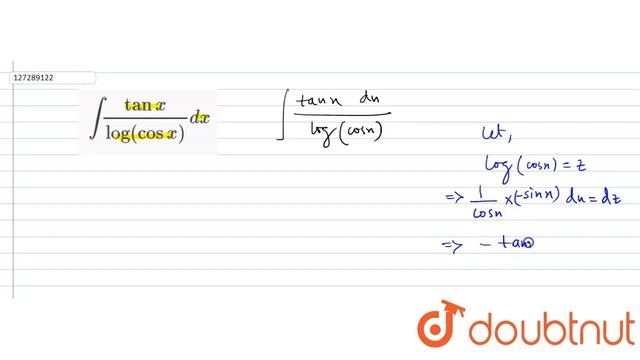 127289122
∫ tan x / log(cos x) dx
∫ tanx dx / log(cosx)
Let,
log(cosx) = z
=> 1/cosx × (-sinx) dx = dz
=> - tan
doubtnut